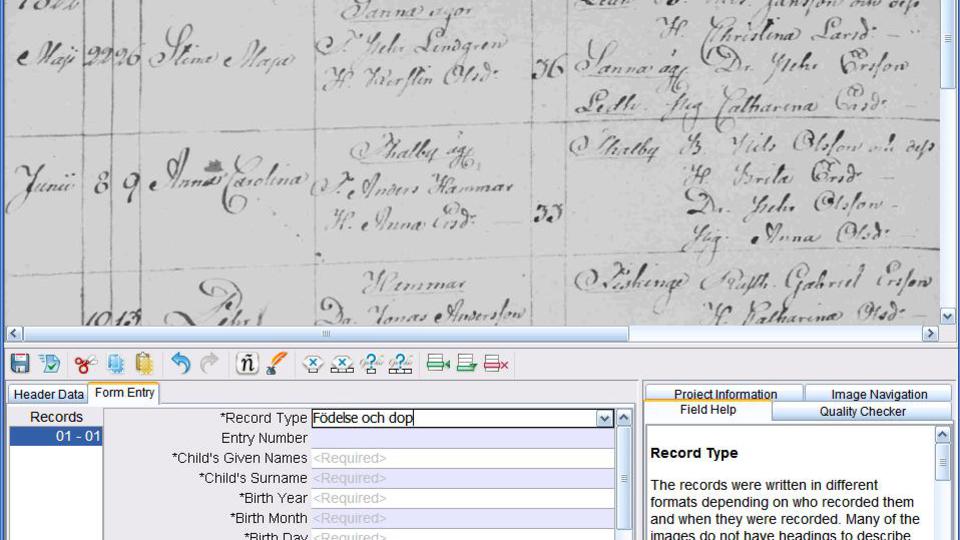 Sanna ägor
H. Christina Larsd:
Maji 22 26 Stina Maja F. Pehr Lindgren
H. Kerstin Olsd: 36 Sanna äg. Dr. Pehr Ersson
Pig Catharina Ersd:
Junii 8 9 Anna Carolina
Thalby äg.
F. Anders Hammar
H. Anna Ersd: 33
Thalby B. Nils Olsson och dess
H. Brita Ersd:
Dr. Pehr Olsson
Pig. Anna Olsd:
Hemmar
Da. Jonas Andersson
Gabriel Ersson
H. Catharina Olsd:
Pehr
Header Data
Form Entry
Records
01 - 01
*Record Type Födelse och dop
Entry Number
*Child's Given Names <Required>
*Child's Surname <Required>
*Birth Year <Required>
*Birth Month <Required>
*Birth Day <Required>
Project Information
Image Navigation
Field Help
Quality Checker
Record Type
The records were written in different
formats depending on who recorded them
and when they were recorded. Many of the
images do not have headings to describe